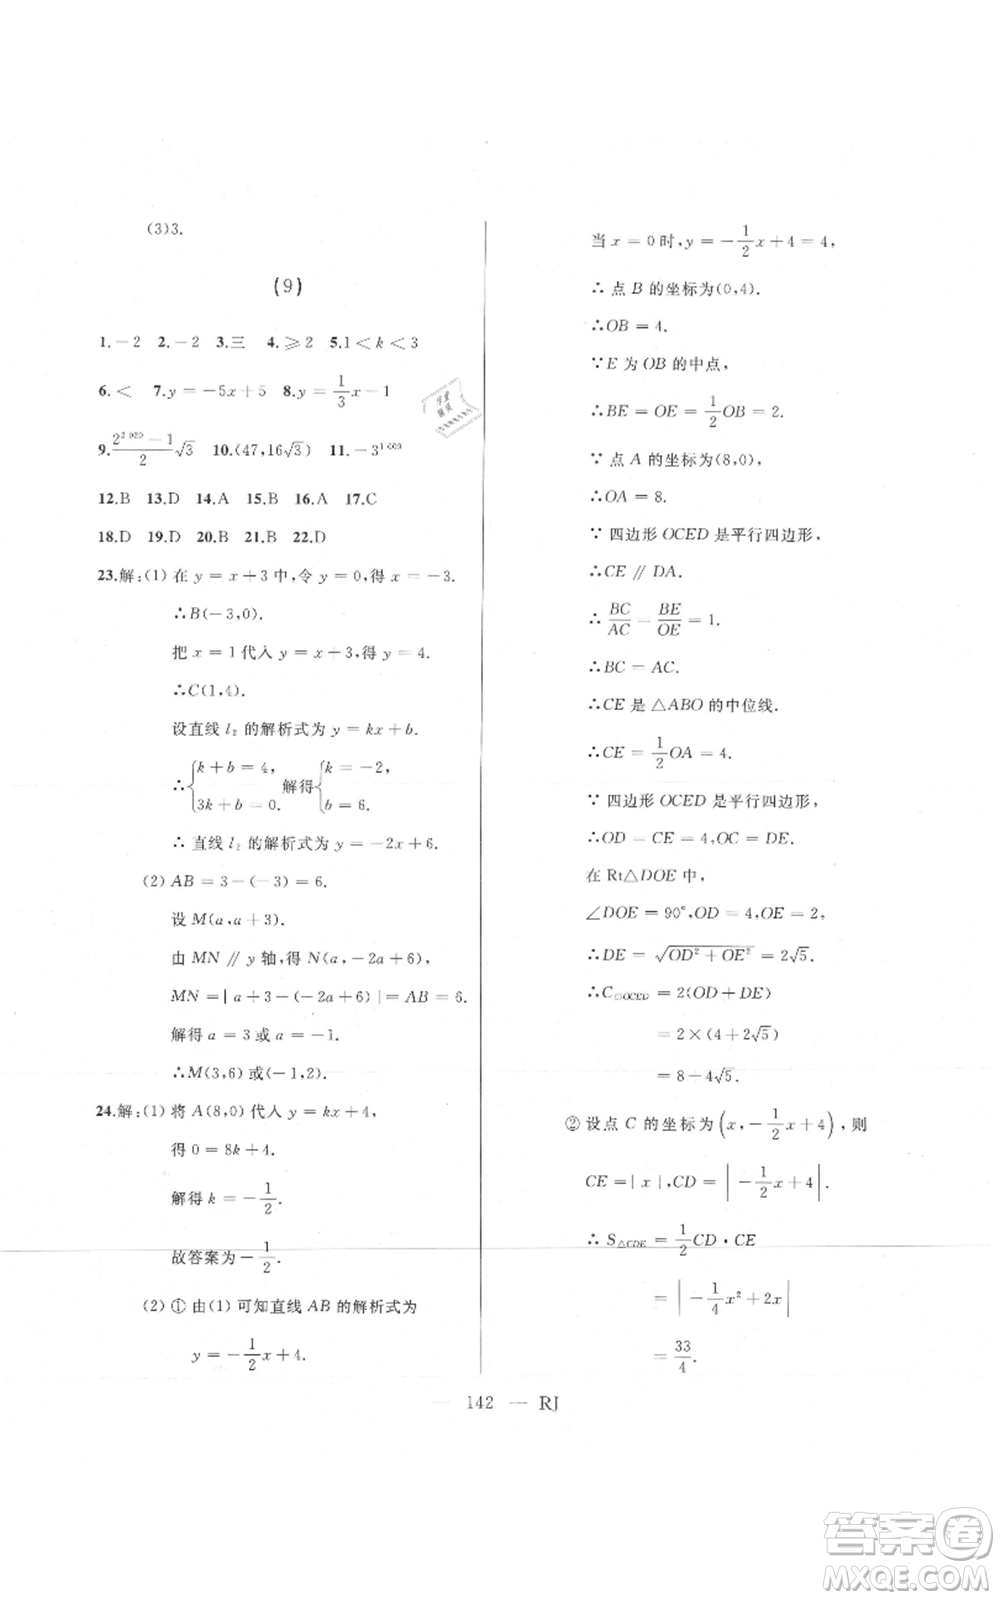 (3)3.
(9)
1.-2 2.-2 3.三 4.≥2 5.1<k<3
6.< 7.y=-5x+5 8.y=1/3x-1
10.(47,16√3)
12.B 13.D 14.A 15.B 16.A 17.C
18.D 19.D 20.B 21.B 22.D
23.解:(1)在y=x+3中,令y=0,得x=-3.
∴B(-3,0).
把x=1代入y=x+3,得y=4.
∴C(1,4).
设直线l₂的解析式为y=kx+b.
∴{k+b=4, 3k+b=0. 解得{k=-2, b=6.
∴直线l₂的解析式为y=-2x+6.
(2)AB=3-(-3)=6.
设M(a,a+3).
由MN∥y轴,得N(a,-2a+6),
MN=|a+3-(-2a+6)|=AB=6.
解得a=3或a=-1.
∴M(3,6)或(-1,2).
24.解:(1)将A(8,0)代入y=kx+4,
得0=8k+4.
解得k=-1/2.
故答案为-1/2.
(2)①由(1)可知直线AB的解析式为
y=-1/2x+4.
当x=0时,y=-1/2x+4=4,
∴点B的坐标为(0,4).
∴OB=4.
∵E为OB的中点,
∴BE=OE=1/2OB=2.
∵点A的坐标为(8,0),
∴OA=8.
∵四边形OCED是平行四边形,
∴CE∥DA.
∴BC/AC=BE/OE=1.
∴BC=AC.
∴CE是△ABO的中位线.
∴CE=1/2OA=4.
∵四边形OCED是平行四边形,
∴OD=CE=4,OC=DE.
在Rt△DOE中,
∠DOE=90°,OD=4,OE=2,
∴DE=√(OD²+OE²)=2√5.
∴C▱OCED=2(OD+DE)
=2×(4+2√5)
=8-4√5.
②设点C的坐标为(x,-1/2x+4),则
CE=|x|,CD=|-1/2x+4|.
∴S△CDE=1/2CD·CE
=|-1/4x²+2x|
=33/4.
142 — RJ
答案卷
MXQE.COM